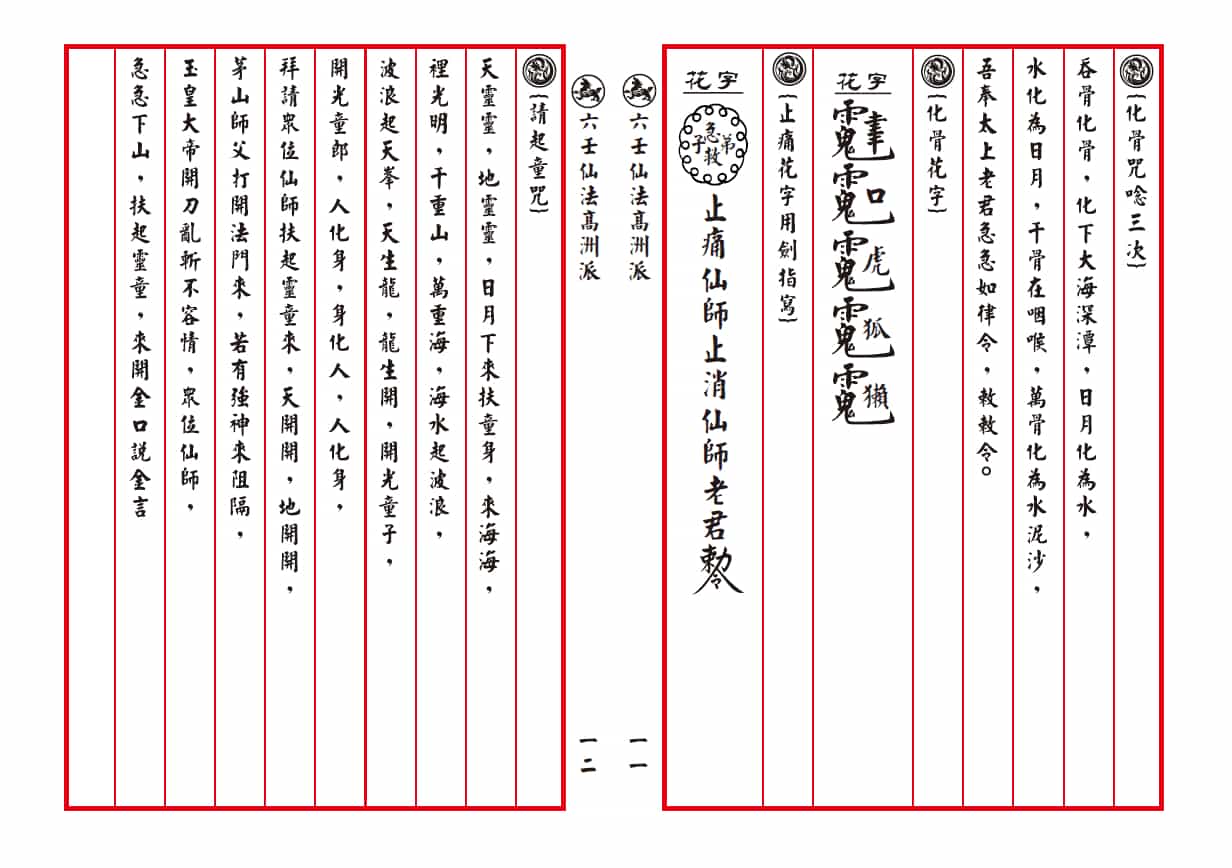 {化骨咒唸三次}
吞骨化骨，化下大海深潭，日月化為水，
水化為日月，千骨在咽喉，萬骨化為水泥沙，
吾奉太上老君急急如律令，敕敕令。
{化骨花字}
花字
{止痛花字用劍指寫}
花字
弟子急救
止痛仙師止消仙師老君勅令
六壬仙法高洲派
一一
六壬仙法高洲派
一二
{請起童咒}
天靈靈，地靈靈，日月下來扶童身，來海海，
裡光明，千重山，萬重海，海水起波浪，
波浪起天拳，天生龍，龍生開，開光童子，
開光童郎，人化身，身化人，人化身，
拜請眾位仙師扶起靈童來，天開開，地開開，
茅山師父打開法門來，若有強神來阻隔，
玉皇大帝開刀亂斬不容情，眾位仙師，
急急下山，扶起靈童，來開金口說金言